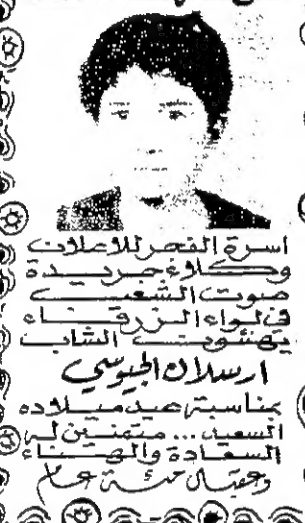 اسرة الفجر للاعلان
وكلاء جريدة
صوت الشعب
في لواء الزرقاء
يهنئون الشاب
ارسلان الجيوسي
بمناسبة عيد ميلاده
السعيد ... متمنين له
السعادة والهناء
وعقبال مئة عام